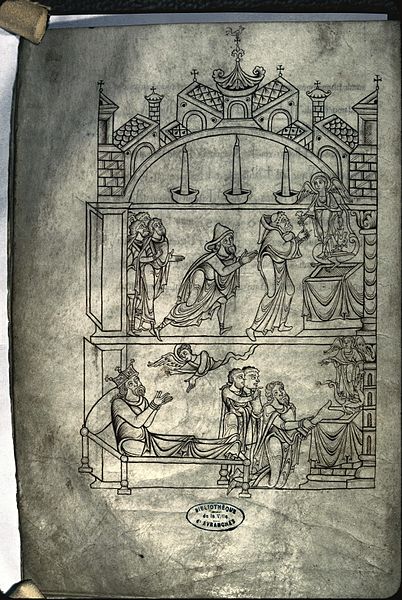 BIBLIOTHÈQUE
de la Ville
d'AVRANCHES